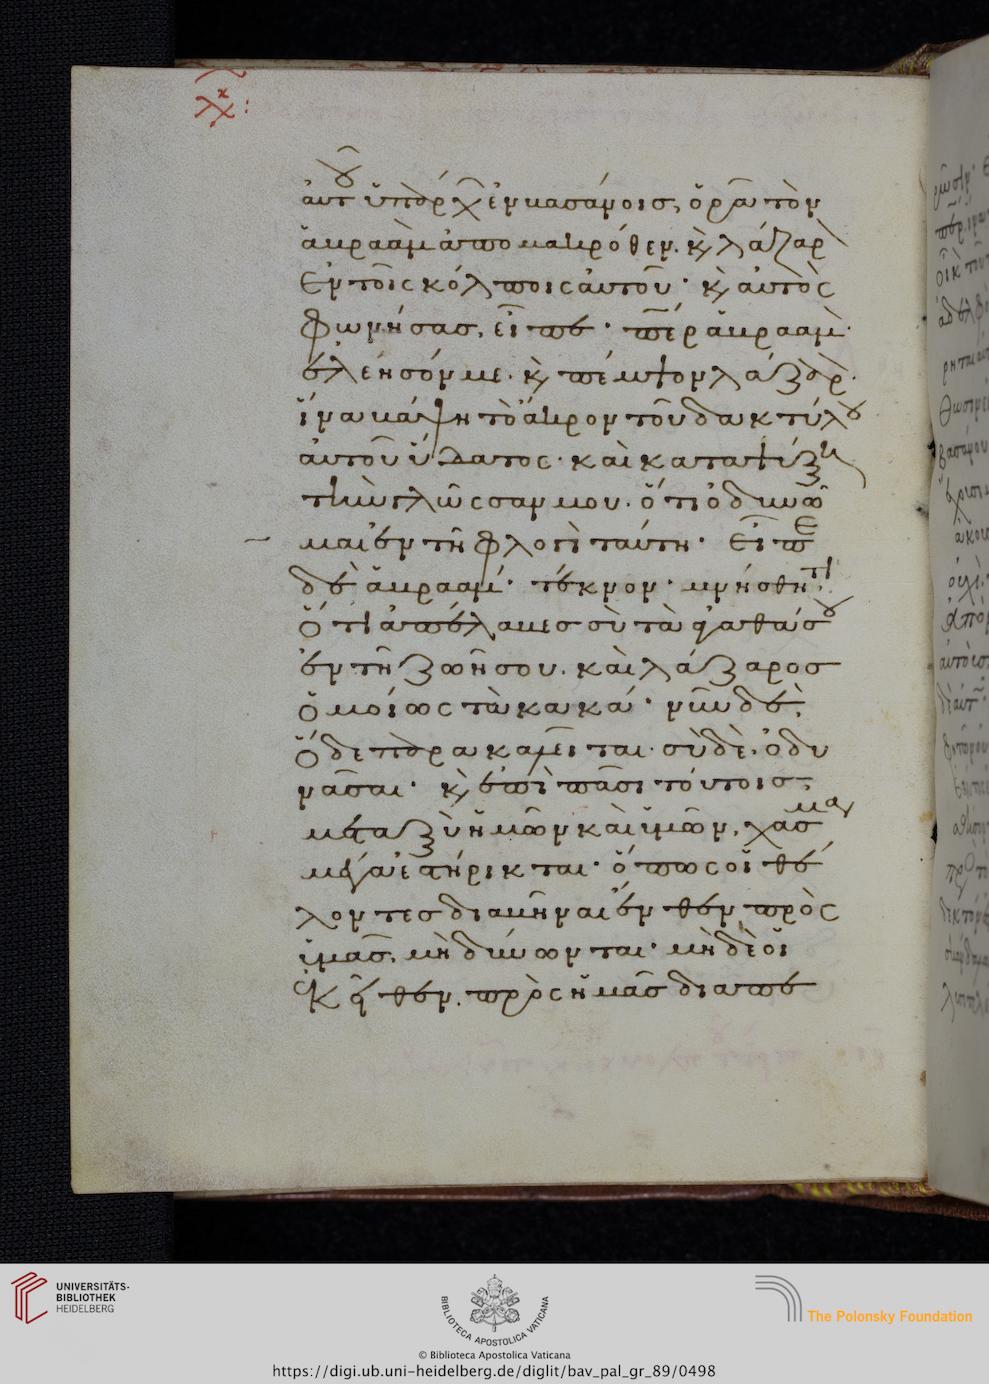 λχ:
αὐτοῦ ὑπάρχ ἐν βασάνοισ, ὁρᾶ τὸν
ἀβραὰμ ἀπο μακρόθεν. κὶ λάζαρ
ἐν τοῖς κόλποις αὐτοῦ· κὶ αὐτὸς
φωνήσασ, εἶπε· πάτερ ἀβραάμ·
ἐλέησόν με· κὶ πέμψον λάζαρ·
ἵνα βάψη τὸ ἄκρον τοῦ δακτύλου
αὐτοῦ ὕδατος· καὶ καταψύξη
τὴν γλῶσσαν μου· ὅτι ὀδυνῶ
μαι ἐν τῆ φλογὶ ταύτη· εἶπε
δὲ ἀβραάμ· τέκνον· μνήσθητι
ὅτι ἀπέλαβεσ σὺ τὰ ἀγαθά σου
ἐν τῆ ζωῆ σου. καὶ λάζαροσ
ὁμοίως τὰ κακά· νῦν δὲ
ὅδε παρακαλεῖται· σὺ δὲ ὀδυ
νᾶσαι· κὶ ἐπὶ πᾶσι τούτοισ
μεταξὺ ἡμῶν καὶ ὑμῶν, χάσμα
μέγα ἐστήρικται· ὅπως οἱ θέ
λοντεσ διαβῆναι ἔνθεν πρὸς
ὑμᾶσ, μὴ δύνωνται· μὴ δὲ οἱ
ἐκεῖθεν. πρὸς ἡμᾶσ διαπε
UNIVERSITÄTS-
BIBLIOTHEK
HEIDELBERG
BIBLIOTECA APOSTOLICA VATICANA
The Polonsky Foundation
© Biblioteca Apostolica Vaticana
https://digi.ub.uni-heidelberg.de/diglit/bav_pal_gr_89/0498